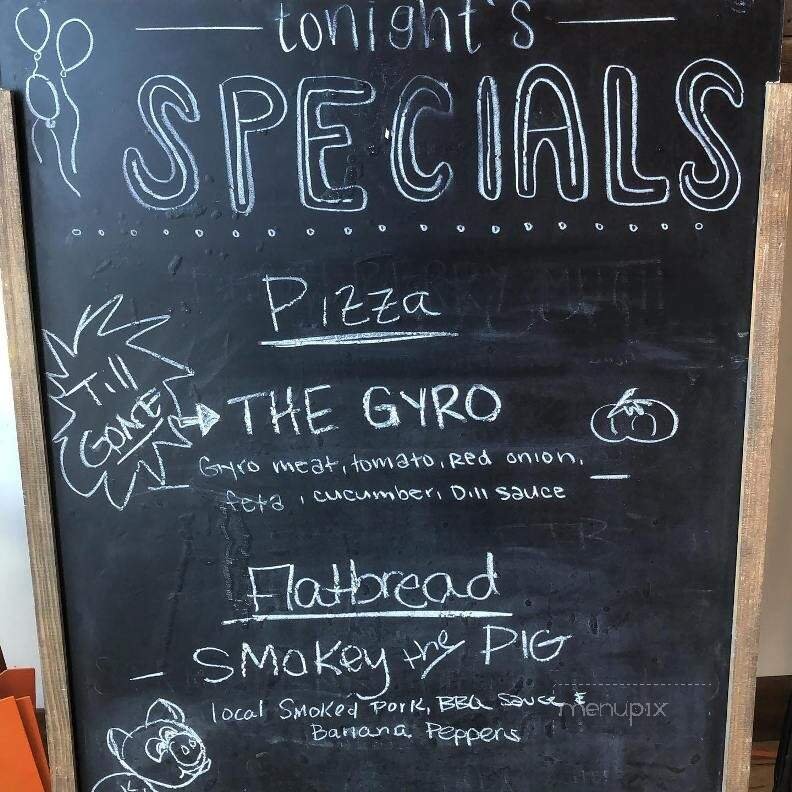 tonight's
SPECIALS
Pizza
Till
GONE
THE GYRO
Gyro meat, tomato, Red onion,
feta, cucumber, Dill sauce
Flatbread
SMOKEY the PIG
local Smoked Pork, BBQ Sauce &
Banana Peppers
menupix